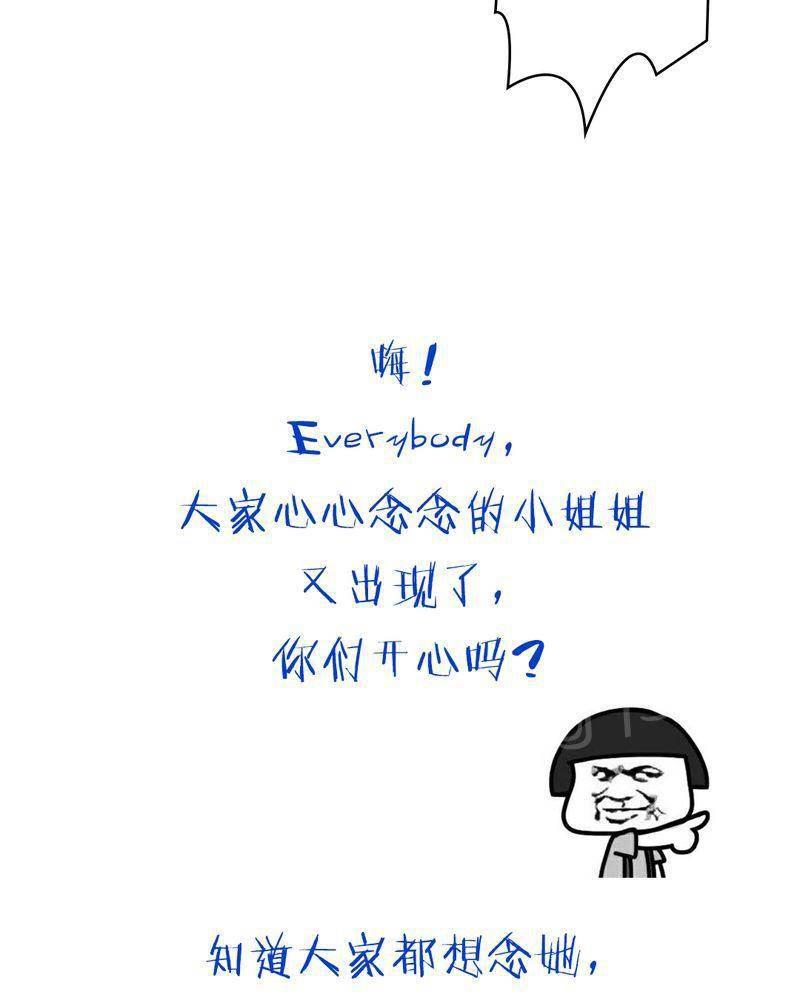 嗨！
Everybody，
大家心心念念的小姐姐
又出现了，
你们开心吗？
知道大家都想念她，